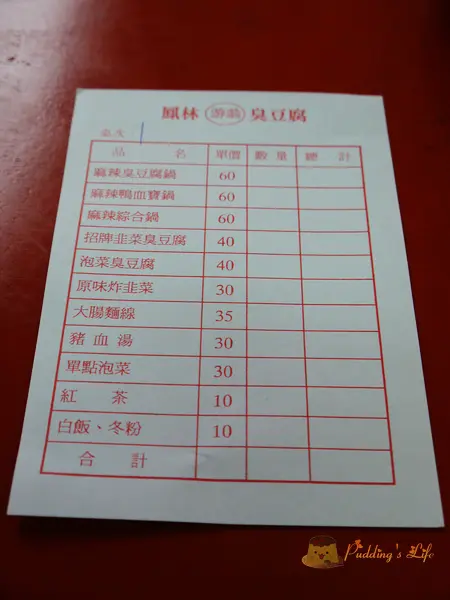 鳳林 游翁 臭豆腐
桌次 1
品 名 單價 數量 總計
麻辣臭豆腐鍋 60
麻辣鴨血寶鍋 60
麻辣綜合鍋 60
招牌韭菜臭豆腐 40
泡菜臭豆腐 40
原味炸韭菜 30
大腸麵線 35
豬血湯 30
單點泡菜 30
紅 茶 10
白飯、冬粉 10
合 計
Pudding's Life